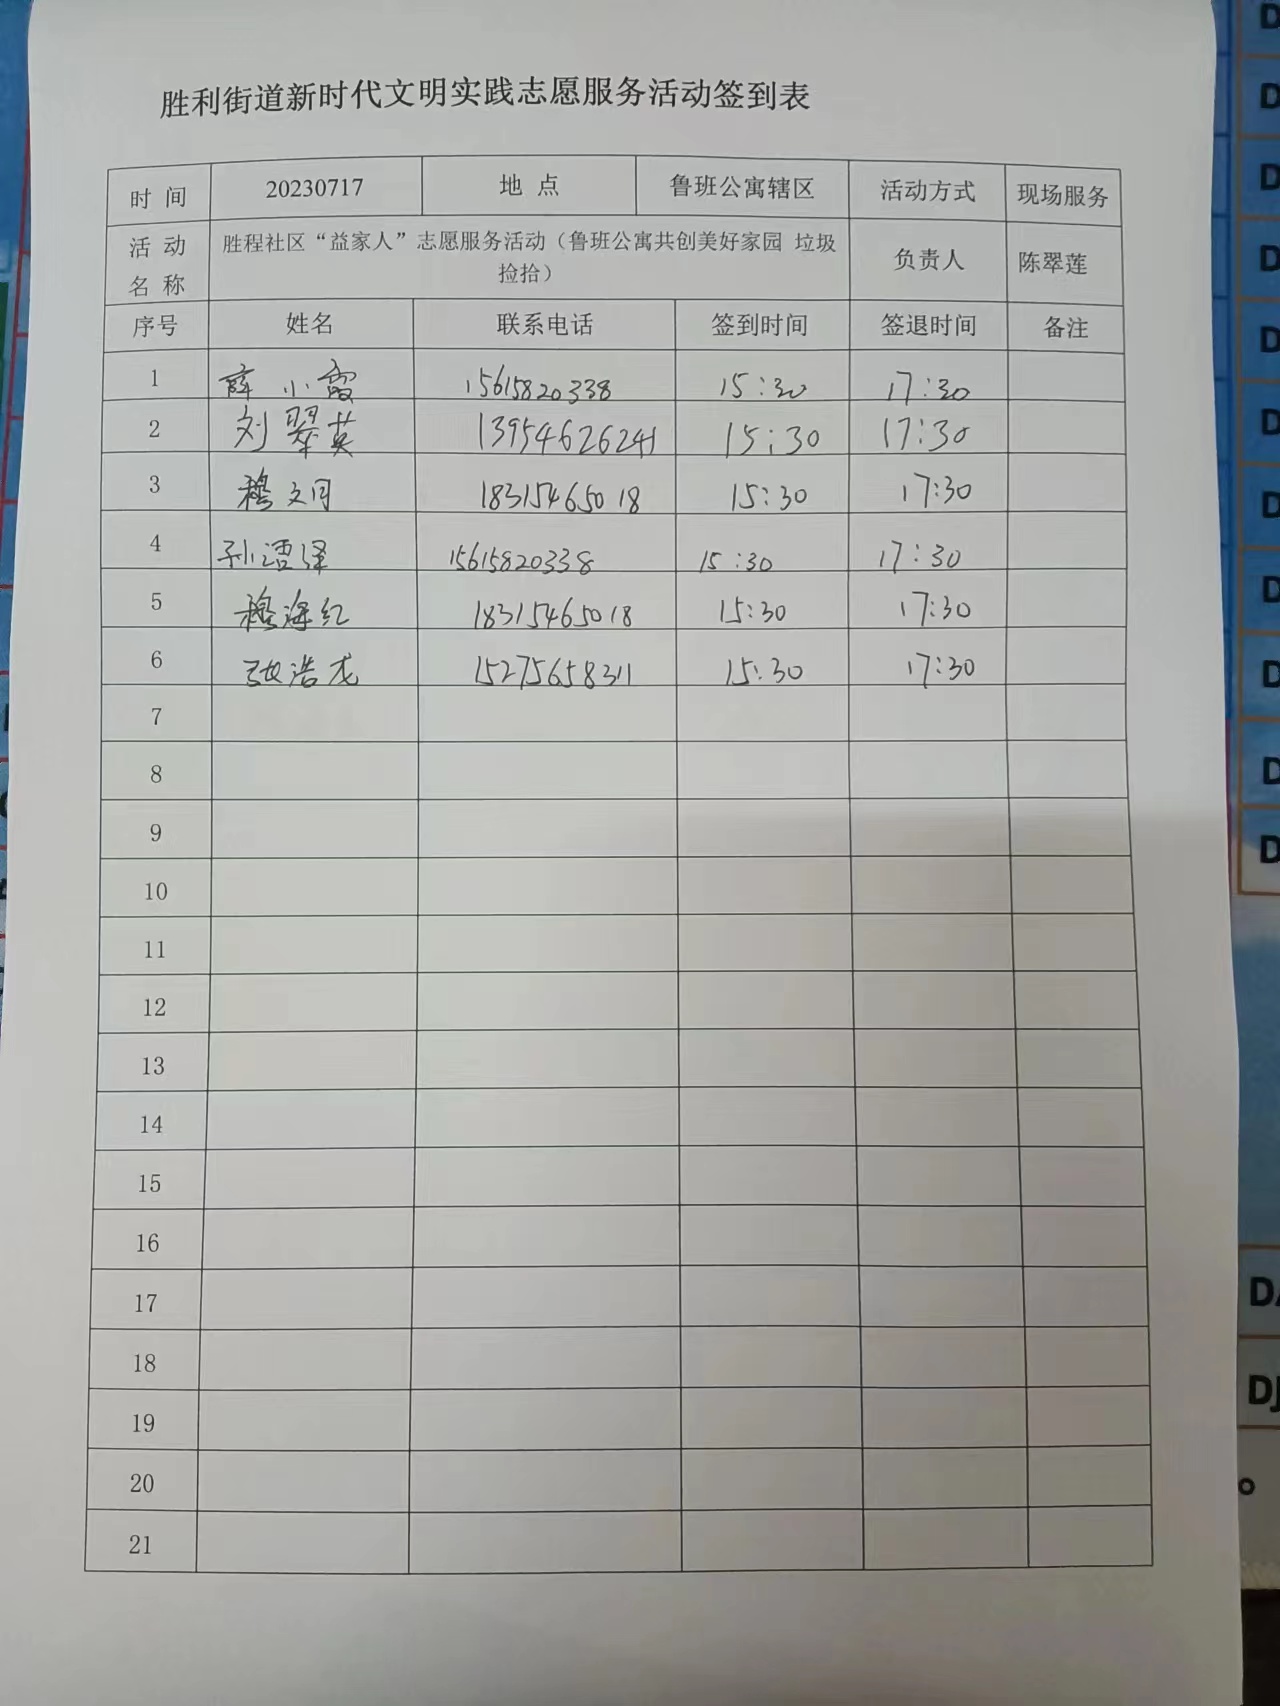 胜利街道新时代文明实践志愿服务活动签到表
时 间 20230717 地 点 鲁班公寓辖区 活动方式 现场服务
活 动 名 称 胜程社区“益家人”志愿服务活动（鲁班公寓共创美好家园 垃圾
捡拾） 负责人 陈翠莲
序号 姓名 联系电话 签到时间 签退时间 备注
1 薛小霞 15615820338 15:30 17:30
2 刘翠英 13954626241 15:30 17:30
3 穆文月 18315465018 15:30 17:30
4 15615820338 15:30 17:30
5 穆海红 18315465018 15:30 17:30
6 张浩龙 15275658311 15:30 17:30
7
8
9
10
11
12
13
14
15
16
17
18
19
20
21